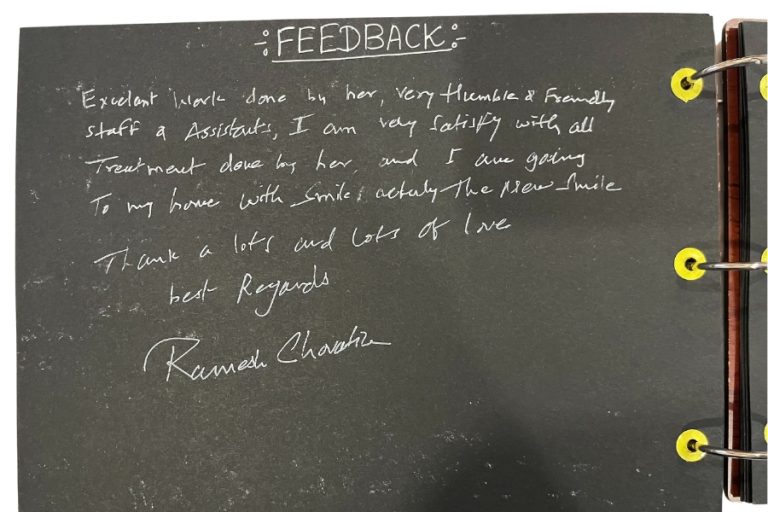 -:FEEDBACK:-
Excelant work done by her, very Humble & Friendly
staff & Assistants, I am very satisfy with all
Treatment done by her, and I am going
To my home with smile, actuly The New Smile
Thank a lots and lots of love
best Regards
Ramesh